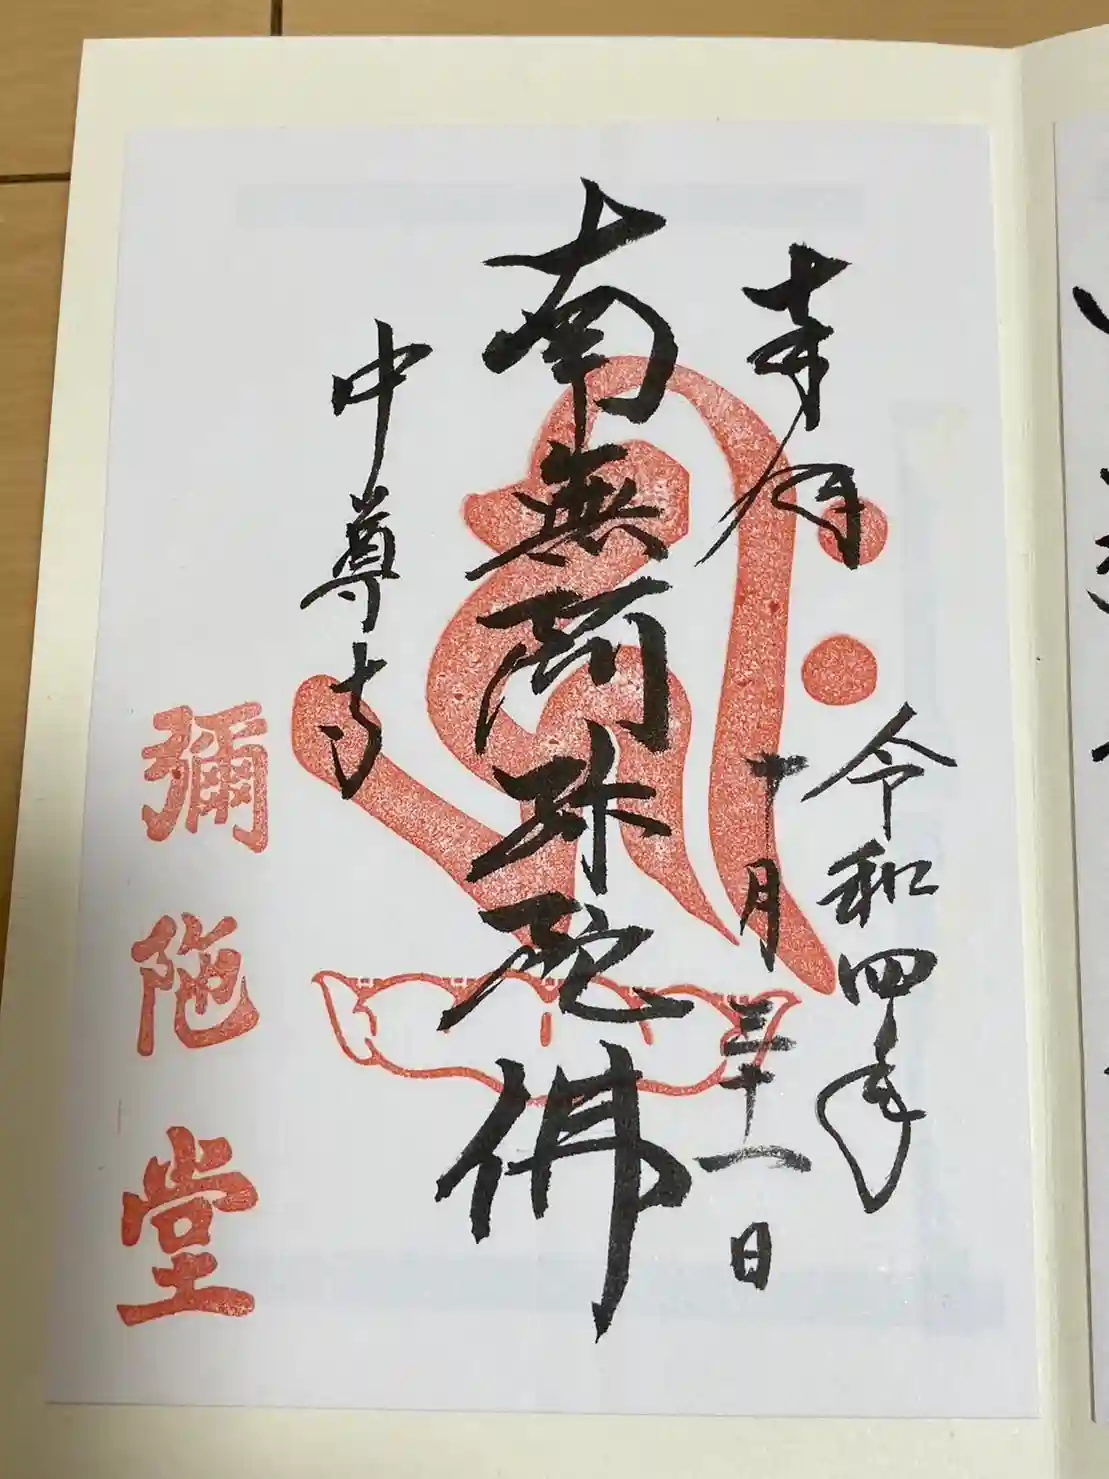 奉拝
令和四年
十月三十一日
南無阿弥陀佛
中尊寺
彌陀堂